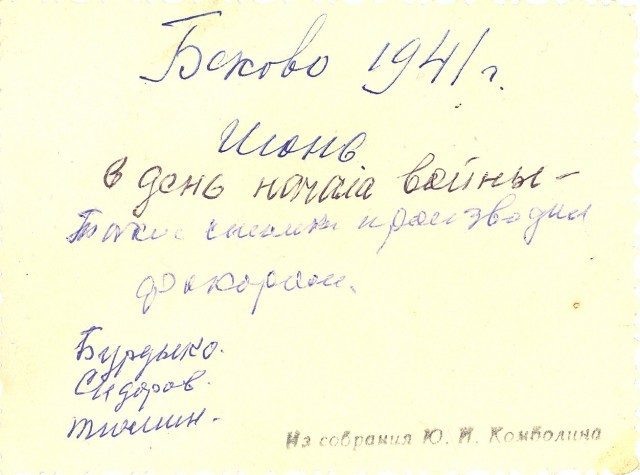 Беково 1941 г.
Июнь
в день начала войны –
Такие снимки производил
фокорам.
Бурдыко.
Сидоров.
Тюлин.
Из собрания Ю. И. Комболина